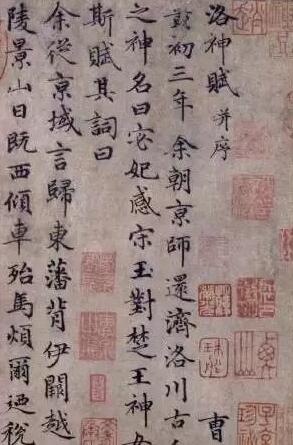 洛神賦 并序 曹
黃初三年余朝京師還濟洛川古
之神名曰宓妃感宋玉對楚王神女
斯賦其詞曰
余從京域言歸東藩背伊闕越
陵景山日既西傾車殆馬煩爾迺稅